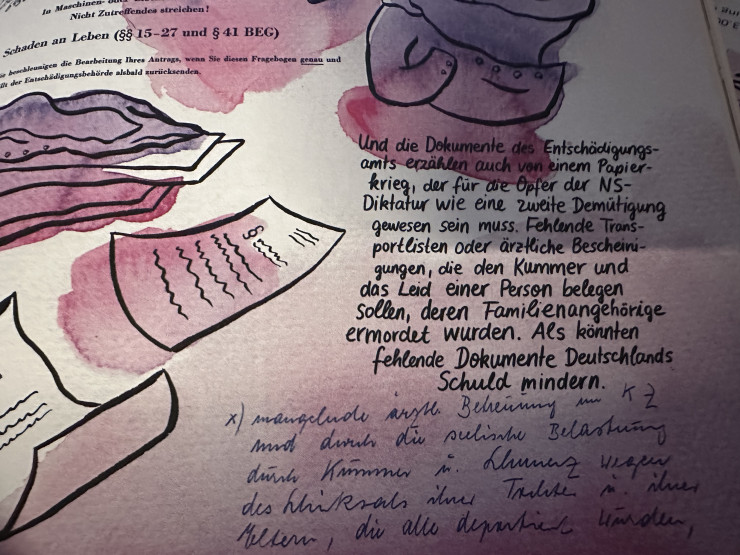 In Maschinen- oder
Nicht Zutreffendes streichen!
Schaden an Leben (§§ 15–27 und § 41 BEG)
beschleunigen die Bearbeitung Ihres Antrags, wenn Sie diesen Fragebogen genau und
der Entschädigungsbehörde alsbald zurücksenden.
Und die Dokumente des Entschädigungs-
amts erzählen auch von einem Papier-
krieg, der für die Opfer der NS-
Diktatur wie eine zweite Demütigung
gewesen sein muss. Fehlende Trans-
portlisten oder ärztliche Bescheini-
gungen, die den Kummer und
das Leid einer Person belegen
sollen, deren Familienangehörige
ermordet wurden. Als könnten
fehlende Dokumente Deutschlands
Schuld mindern.
§
x) mangelnde ärztl. Betreuung im KZ
und durch die seelische Belastung
durch Kummer u. Schmerz wegen
des Schicksals ihrer Tochter u. ihrer
Eltern, die alle deportiert wurden,